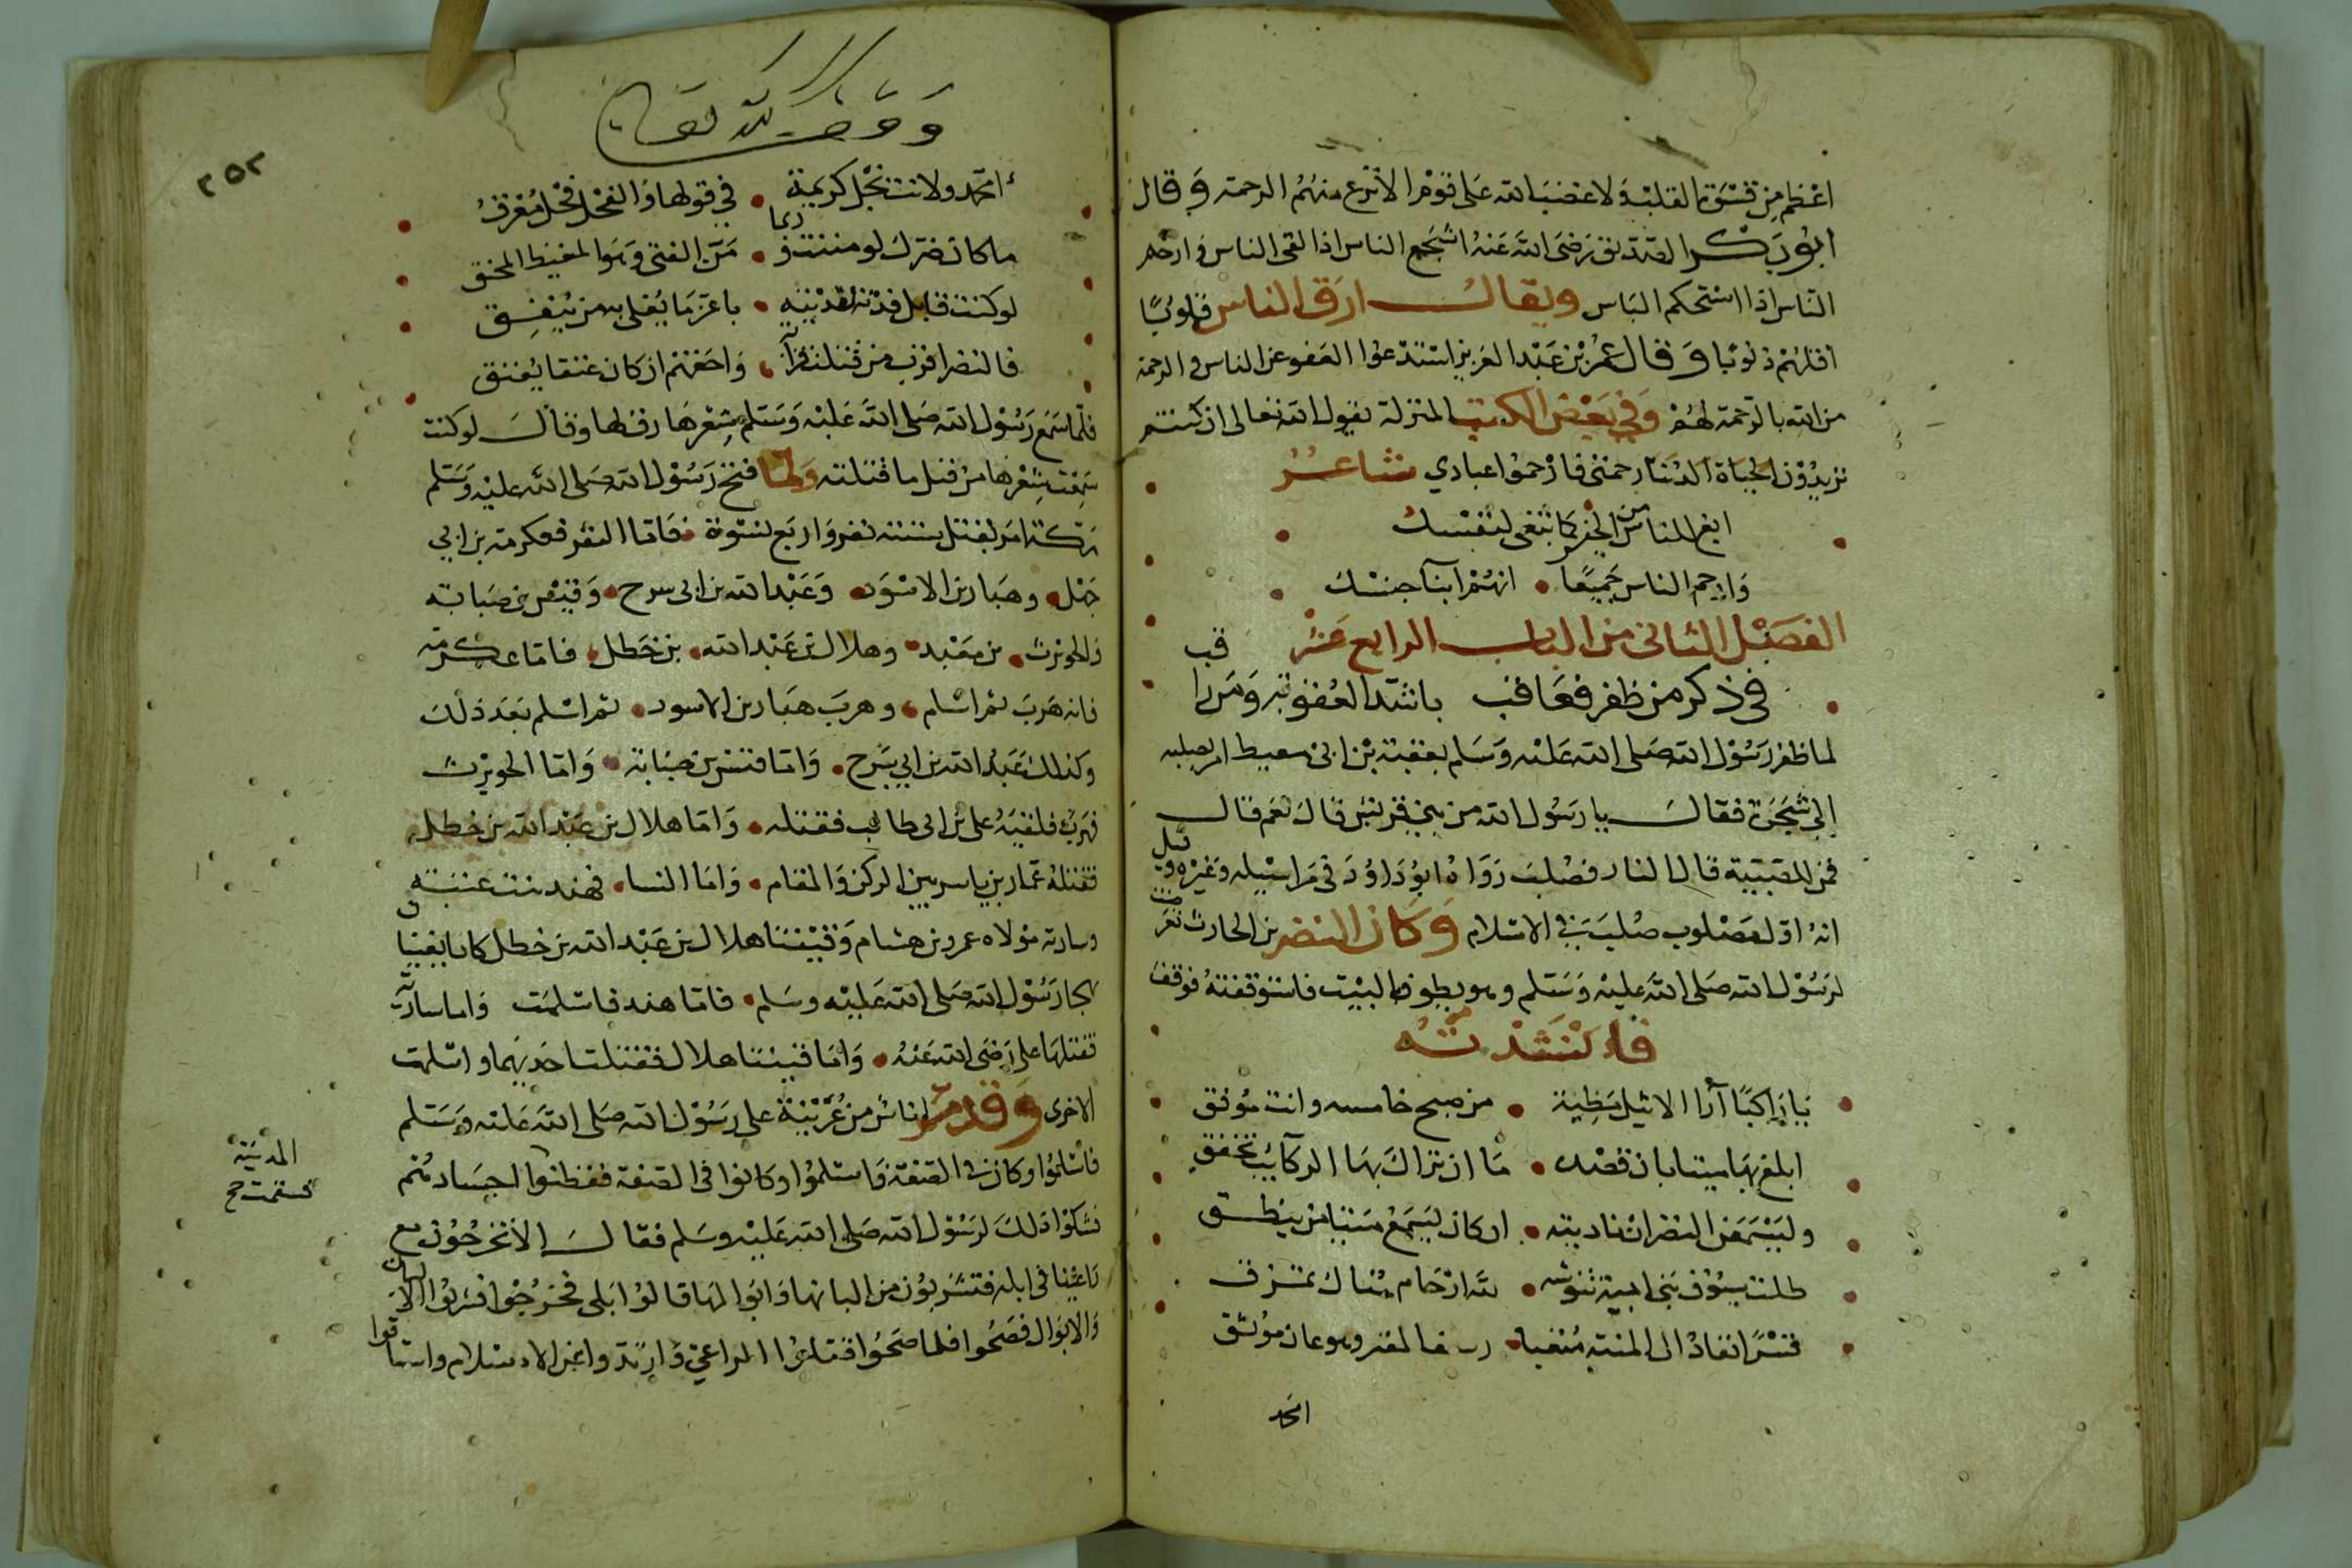 اعظم من قسوة القلب وَلا غضب الله على قوم الا نزع منهم الرحمة وَقال
ابو بكر الصديق رضى الله عنه اشجع الناس اذا لقى الناس وارحم
الناس اذا استحكم الباس ويقال ارق الناس قلوبًا
اقلهم ذنوبا وَقال عمر بن عبد العزيز استدعوا العفو عن الناس والرحمة
من الله بالرحمة لهم وَفي بعض الكتب المنزلة يقول الله تعالى ان كنتم
تريدون لحياة الدنيا رحمتى فارحموا عبادي شاعر
ابغ للناس من الخير كما تبغى لنفسك
وَارحم الناس جميعًا • انهم ابنا جنسك
الفصل الثانى من الباب الرابع عشر
فى ذكر من ظفر فعاقب باشد العقوبة وَمن راقب
لما ظفر رسول الله صلى الله عليه وسلم بعقبة بن ابى معيط امر بصلبه
الى شجرة فقال يا رسول الله من بين قريش قال نعم قال
فمن للصبية قال النار فصلب رَوَاهُ ابو دَاوُدَ فى مراسيله وغيره وقيل
انه اول مصلوب صلب فى الاسلام وَكان النضر بن الحارث تعرضت
لرسول الله صلى الله عليه وسلم وهو يطوف بالبيت فاستوقفته فوقف
فانشدته
يا راكبًا ان الاثيل مظنة • من صبح خامسه وانت موفق
ابلغ بها ميتا بان قصده • ما ان تزاك بها الركايب تخفق
وليسمعن النضر ان ناديته • ان كان يسمع ميتا من ينطق
ظلت سيوف بنى ابيه تنوشه • لله ارحام هناك تمزق
قسرًا تقاد الى المنية متعبا • المقيد وهو عان موثق
امحمد
وقف لله تعالى
٢٥٢
امحمد ولانت نجل كريمة • في قولها والفحل فحل مُعرق
ما كان ضرك لو مننت وربما • من الفتى وهو المغيظ المحنق
لو كنت قابل فدية لفديته • باعز ما يغلى به من ينفق
فالنضر اقرب من قتلت قرابة • وَاحقهم ان كان عتقا يعتق
فلما سمع رسول الله صلى الله عليه وسلم شعرها رق لها وقال لو كنت
سمعت شعرها من قبل ما قتلته ولما فتح رسول الله صلى الله عليه وسلم
مكة امر بقتل ستة نفر وَاربع نسوة • فاما النفر فعكرمة بن ابي
جهل • وهبار بن الاسود • وعبد الله بن ابى سرح • وقيس بن صبابة
والحويرث • بن معبد • وهلال بن عبد الله • بن خطل • فاما عكرمة
فانه هرب ثم اسلم • وهرب هبار بن الاسود • ثم اسلم بعد ذلك
وكذلك عبد الله بن ابي سرح • وَاما قيس بن صبابة • وَاما الحويرث
فهرب فلقيه على بن ابى طالب فقتله • وَاما هلال بن عبد الله بن خطل
فقتله عمار بن ياسر بين الركن والمقام • وَاما النسا • فهند بنت عتبة
وسارة مولاة عمرو بن هشام وقينتا هلال بن عبد الله بن خطل كانا يغنيان
بهجا رسول الله صلى الله عليه وسلم • فاما هند فاسلمت وَاما سارة
فقتلها على رضى الله عنه • وَاما قينتا هلال فقتلت احديهما واسلمت
الاخرى وَقدم ناس من عُرينة على رسول الله صلى الله عليه وسلم
المدينة
فاسلموا وكان فى الصفة فاسلموا وكانوا فى الصفة اجسادهم
فشكوا ذلك لرسول الله صلى الله عليه وسلم فقال الا تخرجون مع
راعينا فى ابله فتشربون من البانها وَابوالها قالوا بلى فخرجوا فشربوا البان
وَالابوال فصحوا فلما صحوا قتلوا الراعي وَارتدوا عن الاسلام واستاقوا